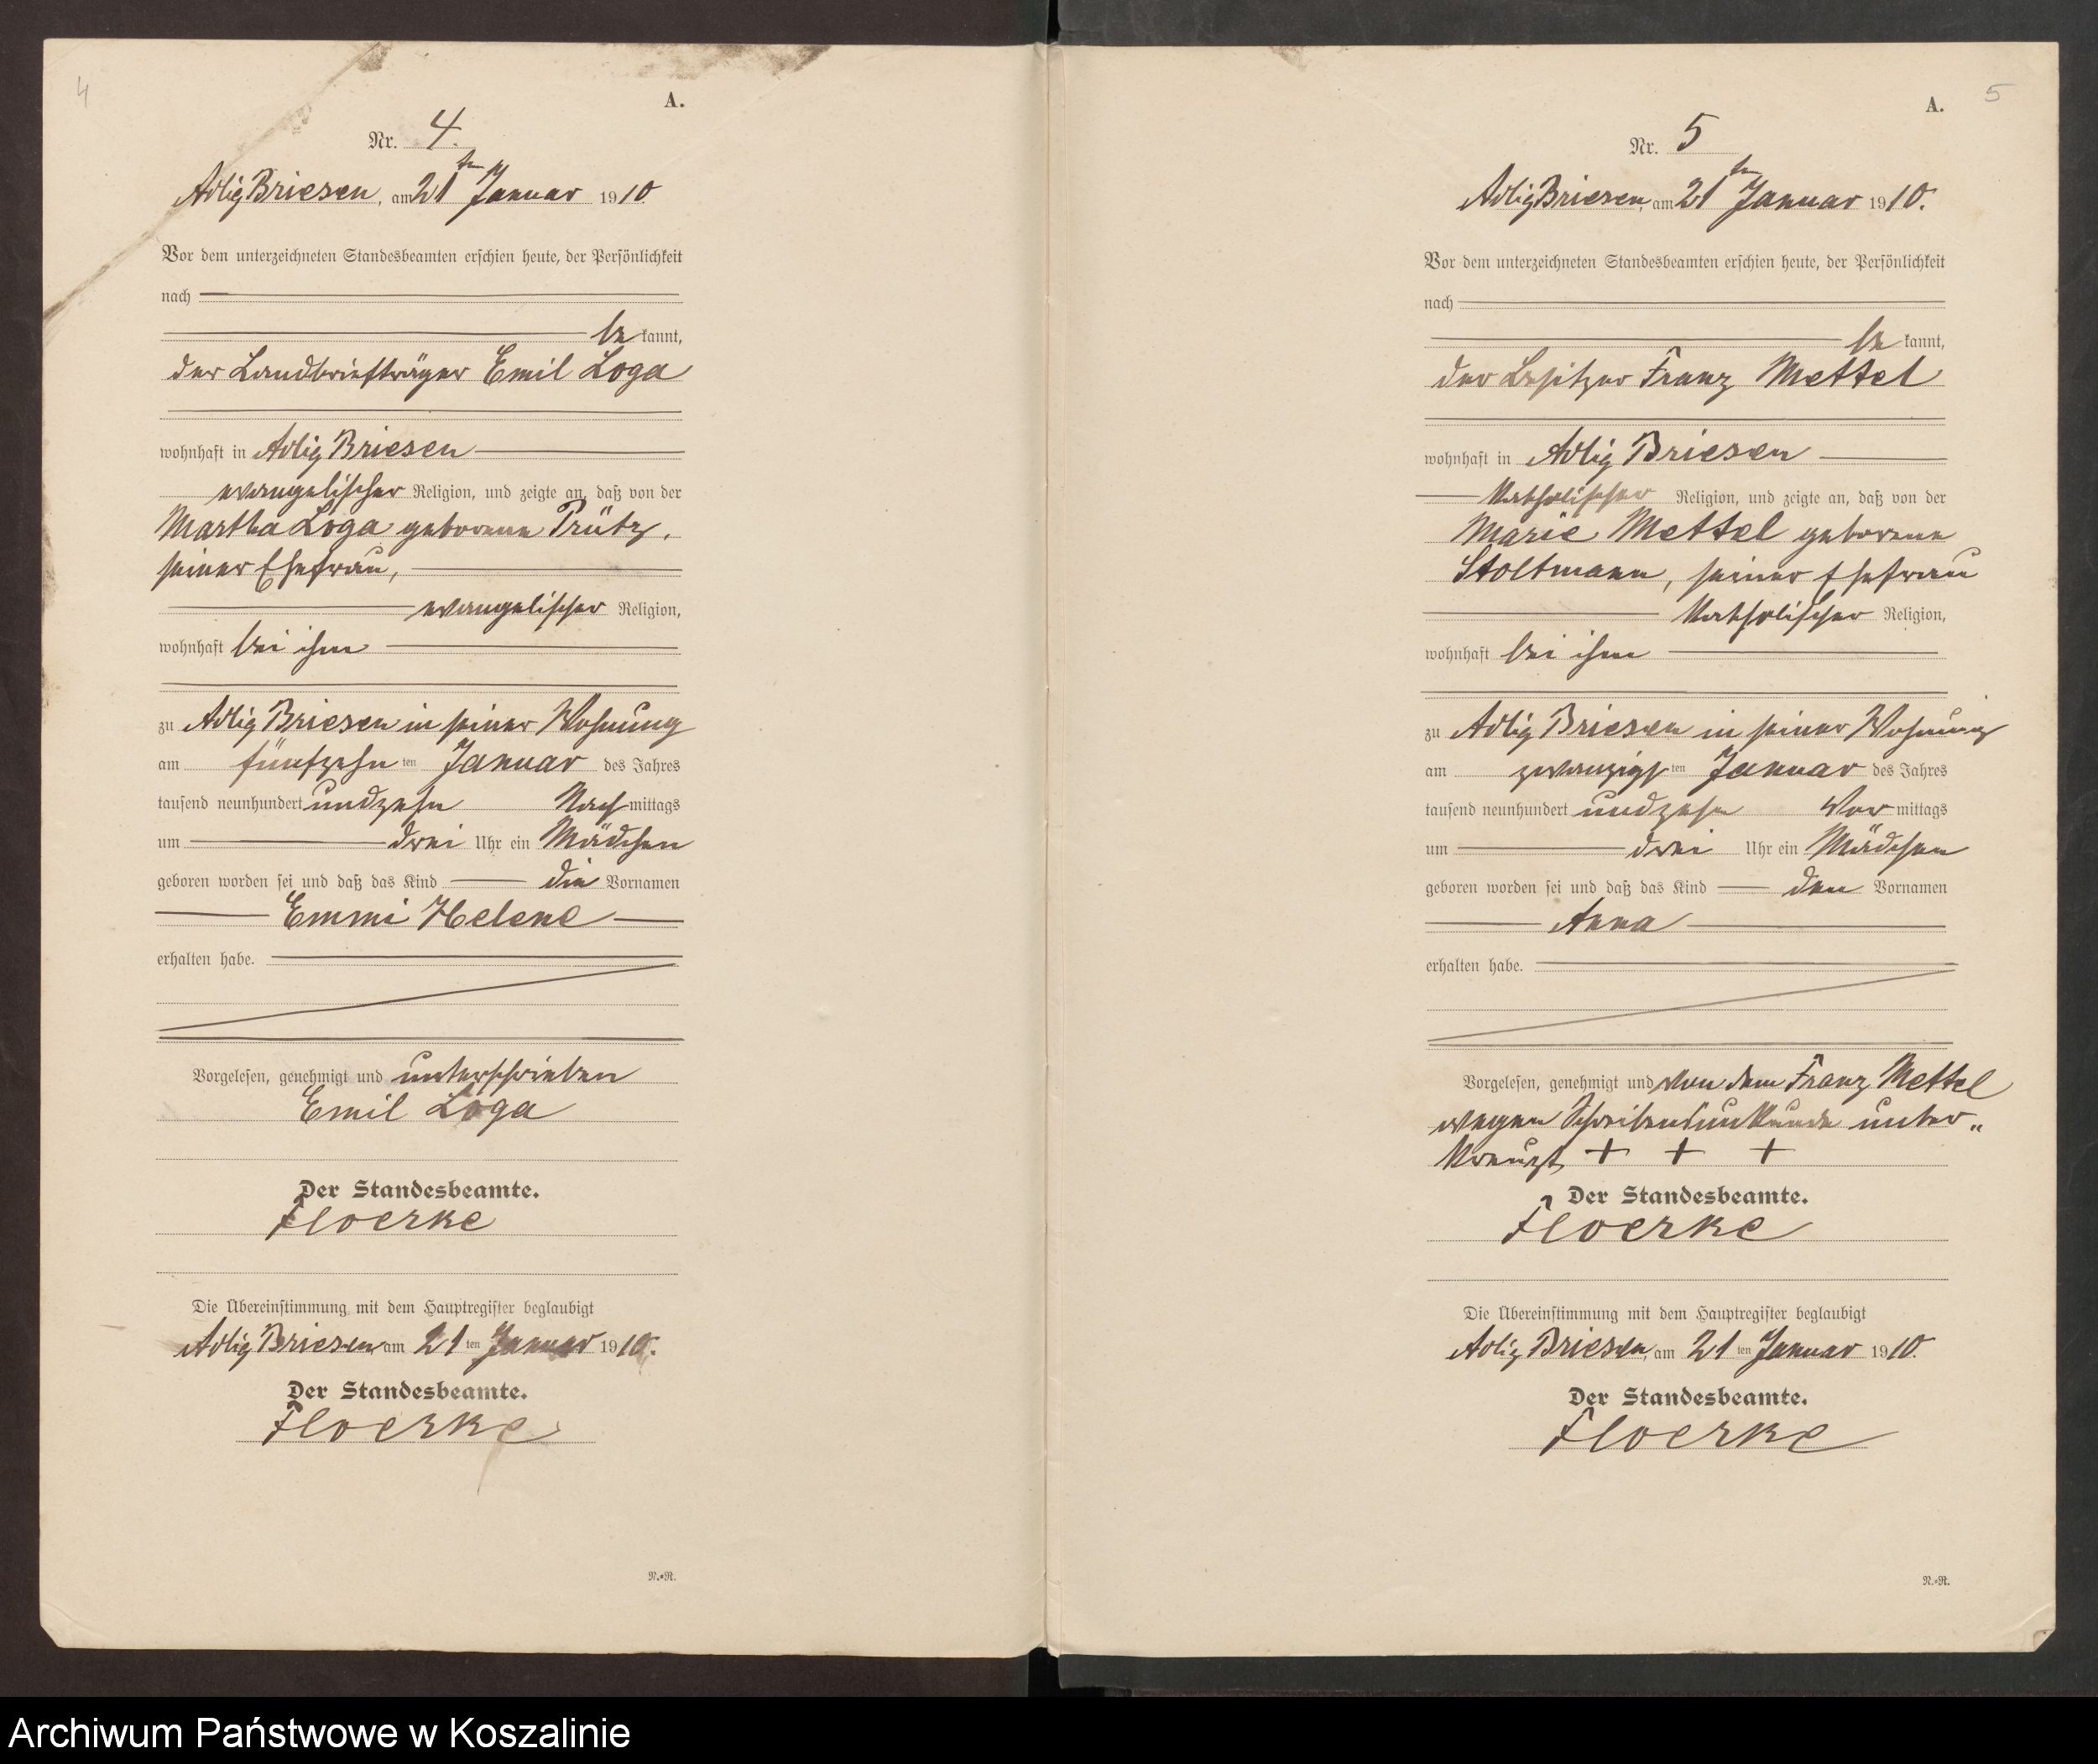 4
A.
Nr. 4.
Adlig Briesen, am 21ten Januar 1910.
Vor dem unterzeichneten Standesbeamten erschien heute, der Persönlichkeit
nach
be kannt,
der Landbriefträger Emil Loga
wohnhaft in Adlig Briesen
evangelischer Religion, und zeigte an, daß von der
Martha Loga geborene Prütz,
seiner Ehefrau,
evangelischer Religion,
wohnhaft bei ihm
zu Adlig Briesen in seiner Wohnung
am fünfzehn ten Januar des Jahres
tausend neunhundert undzehn Nach mittags
um drei Uhr ein Mädchen
geboren worden sei und daß das Kind die Vornamen
Emmi Helene
erhalten habe.
Vorgelesen, genehmigt und unterschrieben
Emil Loga
Der Standesbeamte.
Floerke
Die Übereinstimmung mit dem Hauptregister beglaubigt
Adlig Briesen am 21 ten Januar 1910.
Der Standesbeamte.
Floerke
N.=R.
5
A.
Nr. 5
Adlig Briesen, am 21ten Januar 1910.
Vor dem unterzeichneten Standesbeamten erschien heute, der Persönlichkeit
nach
be kannt,
der Besitzer Franz Mettel
wohnhaft in Adlig Briesen
katholischer Religion, und zeigte an, daß von der
Marie Mettel geborene
Stoltmann, seiner Ehefrau
katholischer Religion,
wohnhaft bei ihm
zu Adlig Briesen in seiner Wohnung
am zwanzigs ten Januar des Jahres
tausend neunhundert undzehn Vor mittags
um drei Uhr ein Mädchen
geboren worden sei und daß das Kind den Vornamen
Anna
erhalten habe.
Vorgelesen, genehmigt und von dem Franz Mettel
wegen Schreibensunkunde unter„
kreuzt + + +
Der Standesbeamte.
Floerke
Die Übereinstimmung mit dem Hauptregister beglaubigt
Adlig Briesen, am 21 ten Januar 1910.
Der Standesbeamte.
Floerke
N.=R.
Archiwum Państwowe w Koszalinie